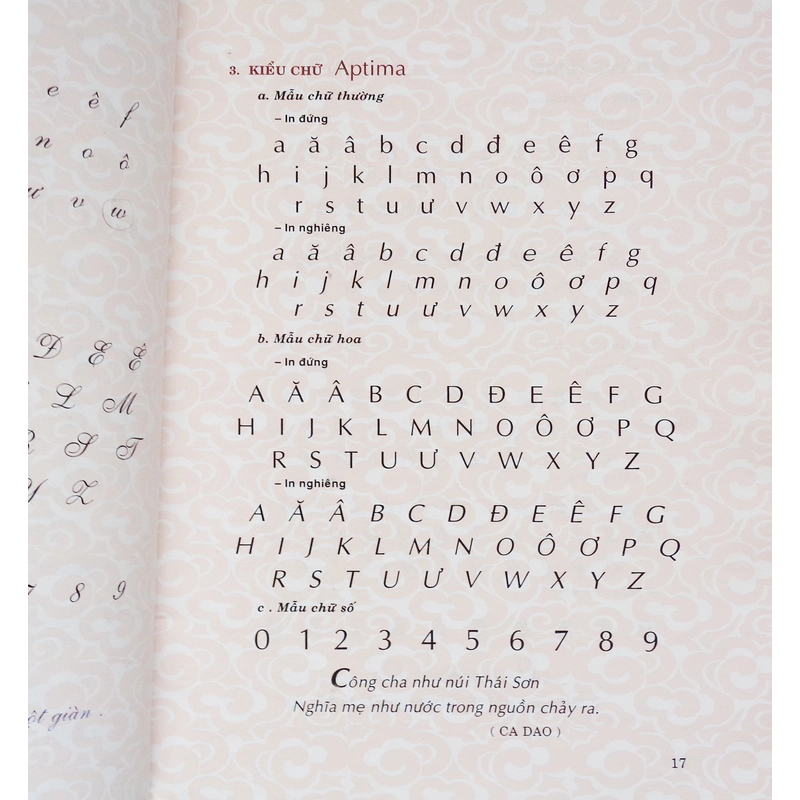 e ê f
n o ô
ư v w
Đ E Ê
L M
R S T
Y Z
7 8 9
một giàn .
3. KIỂU CHỮ Aptima
a. Mẫu chữ thường
– In đứng
a ă â b c d đ e ê f g
h i j k l m n o ô ơ p q
r s t u ư v w x y z
– In nghiêng
a ă â b c d đ e ê f g
h i j k l m n o ô ơ p q
r s t u ư v w x y z
b. Mẫu chữ hoa
– In đứng
A Ă Â B C D Đ E Ê F G
H I J K L M N O Ô Ơ P Q
R S T U Ư V W X Y Z
– In nghiêng
A Ă Â B C D Đ E Ê F G
H I J K L M N O Ô Ơ P Q
R S T U Ư V W X Y Z
c . Mẫu chữ số
0 1 2 3 4 5 6 7 8 9
Công cha như núi Thái Sơn
Nghĩa mẹ như nước trong nguồn chảy ra.
( CA DAO )
17